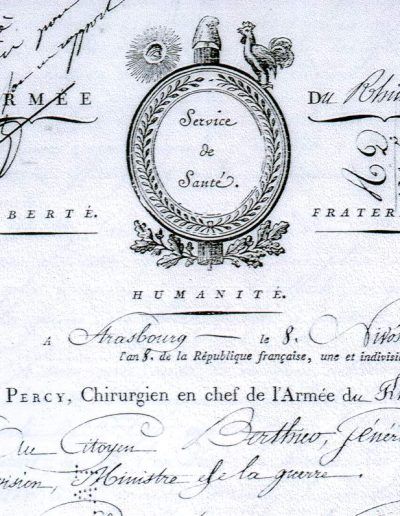 pour
un rapport
RMÉE
DU Rhin
Service
de
Santé.
BERTÉ.
FRATER
HUMANITÉ.
A Strasbourg le 8. Nivos
l'an 8. de la République française, une et indivisi
PERCY, Chirurgien en chef de l'Armée du
au Citoyen Berthier, Génér
vision, Ministre de la guerre.